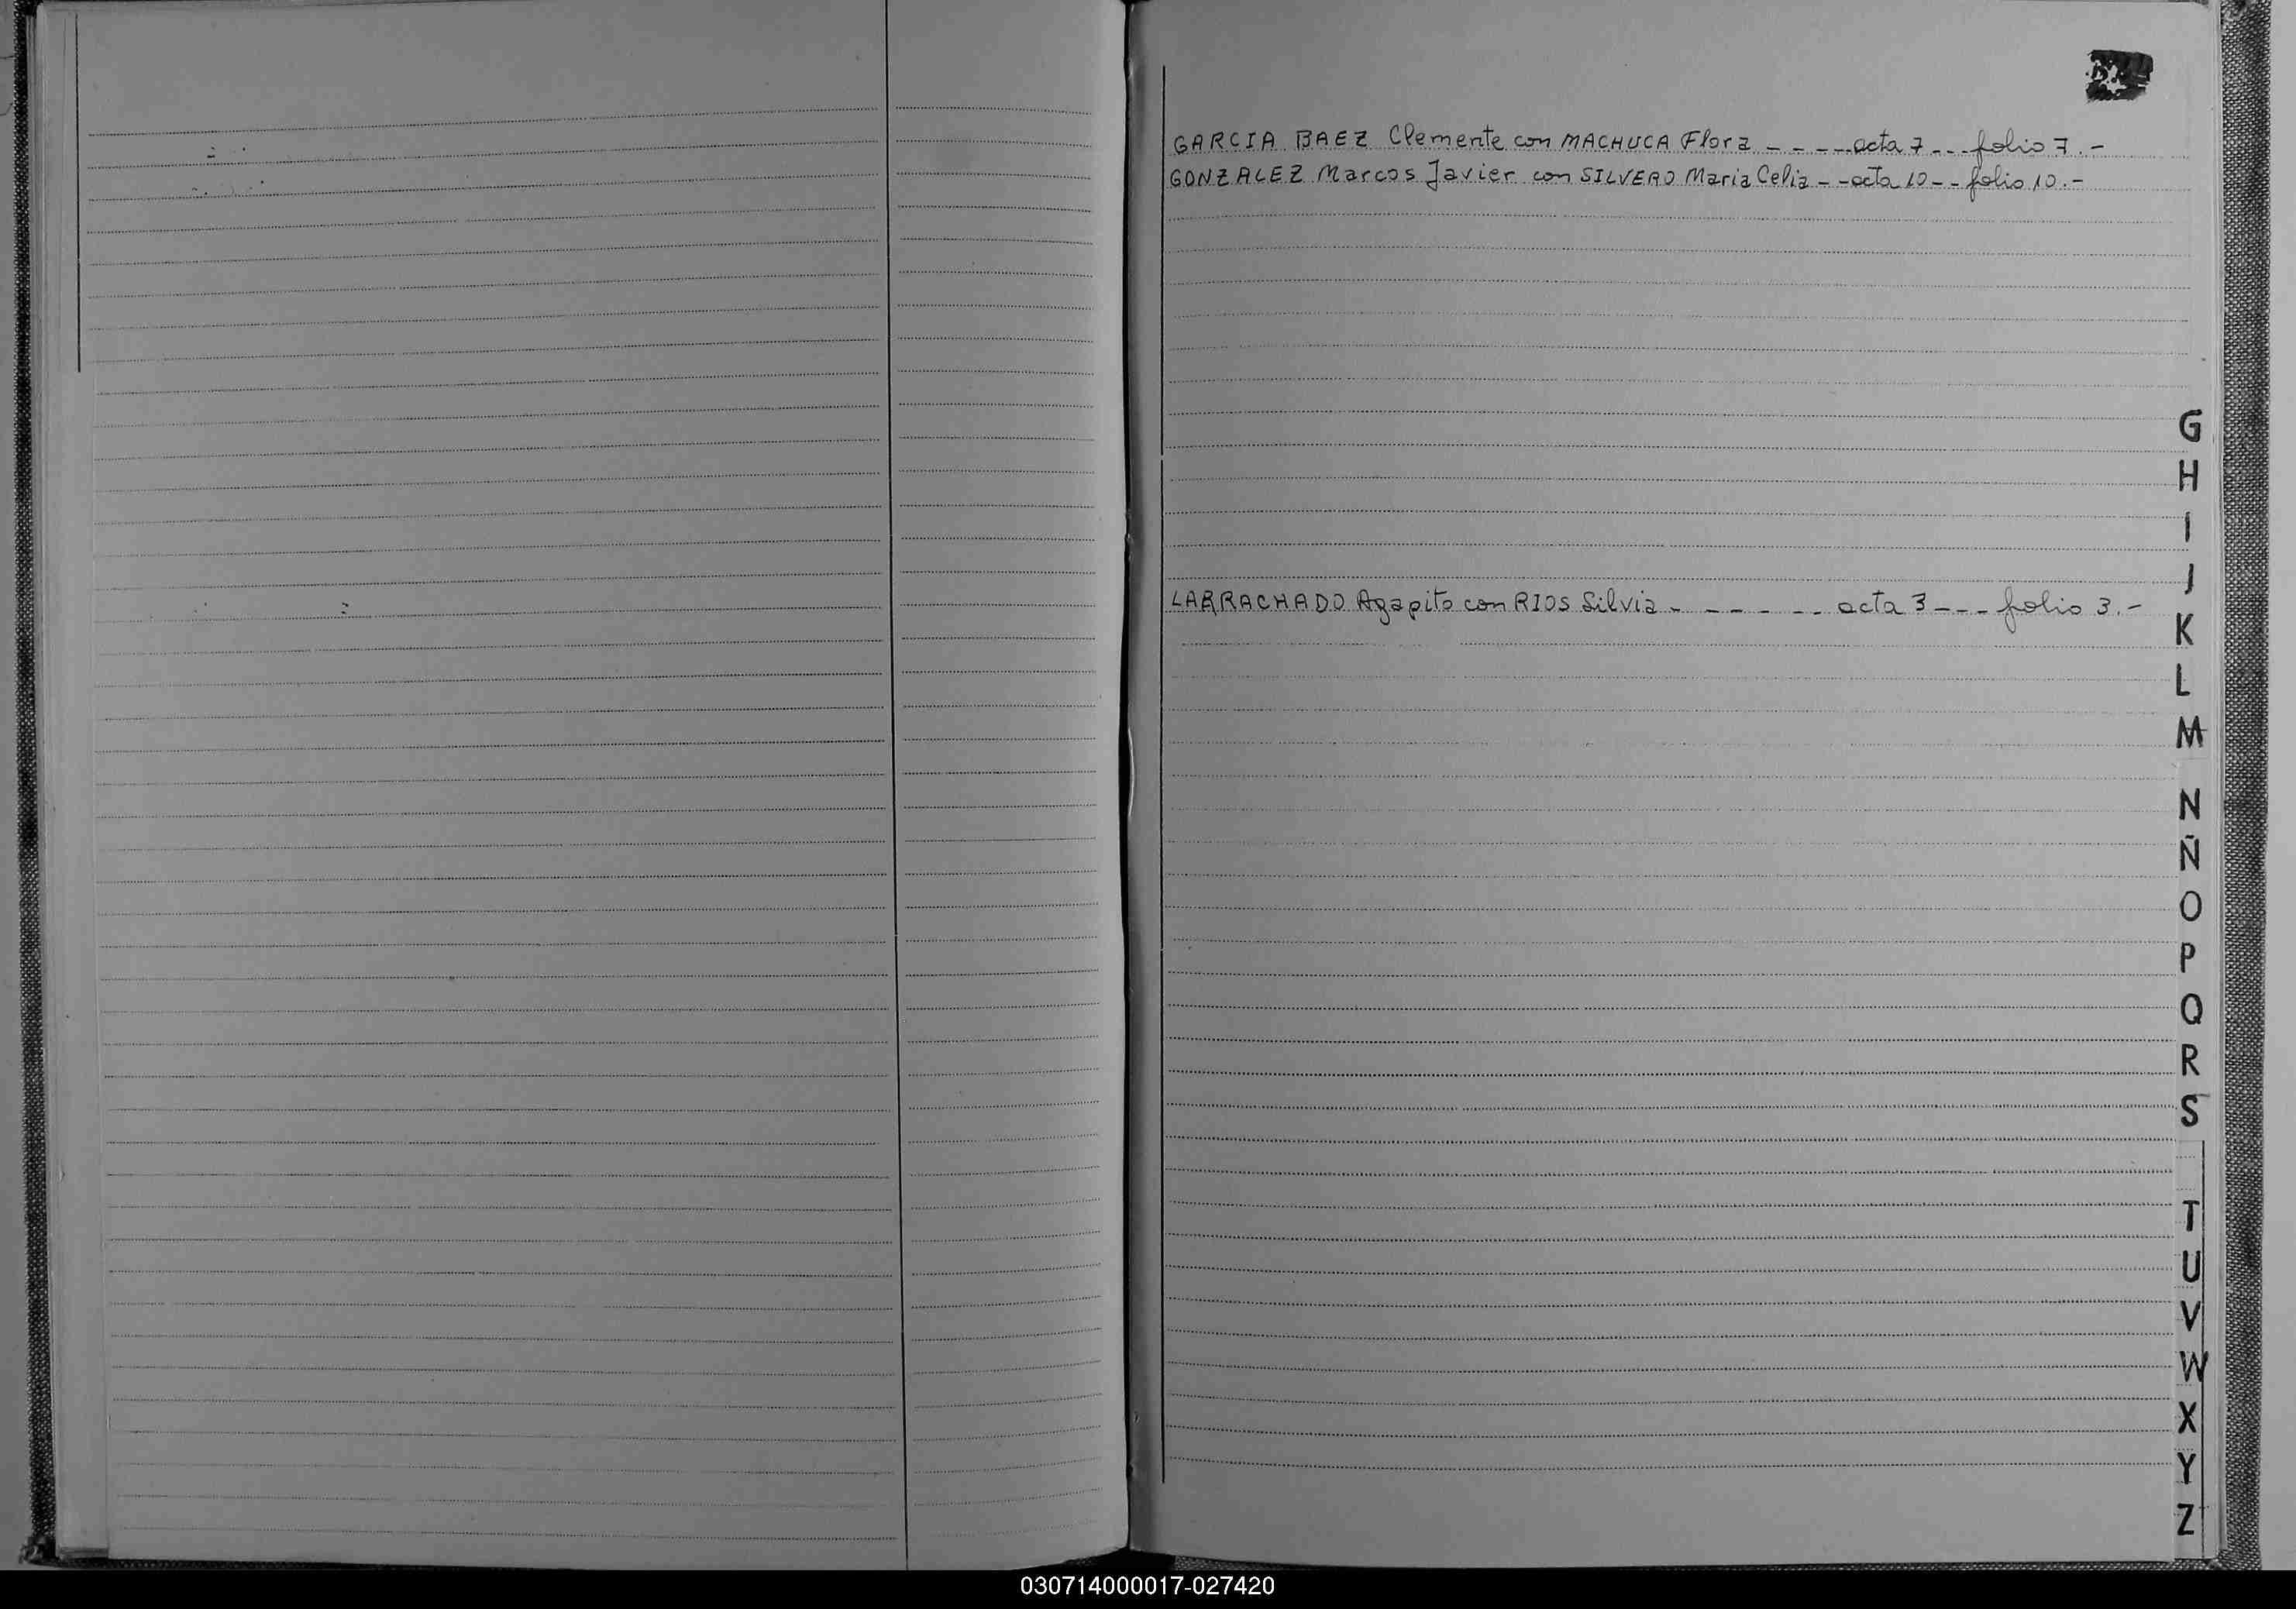 GARCIA BAEZ Clemente con MACHUCA Flora - - - - - acta 7 - - - folio 7.-
GONZALEZ Marcos Javier con SILVERO Maria Celia - - acta 10 - - folio 10.-
G
H
I
J
LARRACHADO Agapito con RIOS Silvia - - - - - - - acta 3 - - - folio 3.-
K
L
M
N
Ñ
O
P
Q
R
S
T
U
V
W
X
Y
Z
030714000017-027420